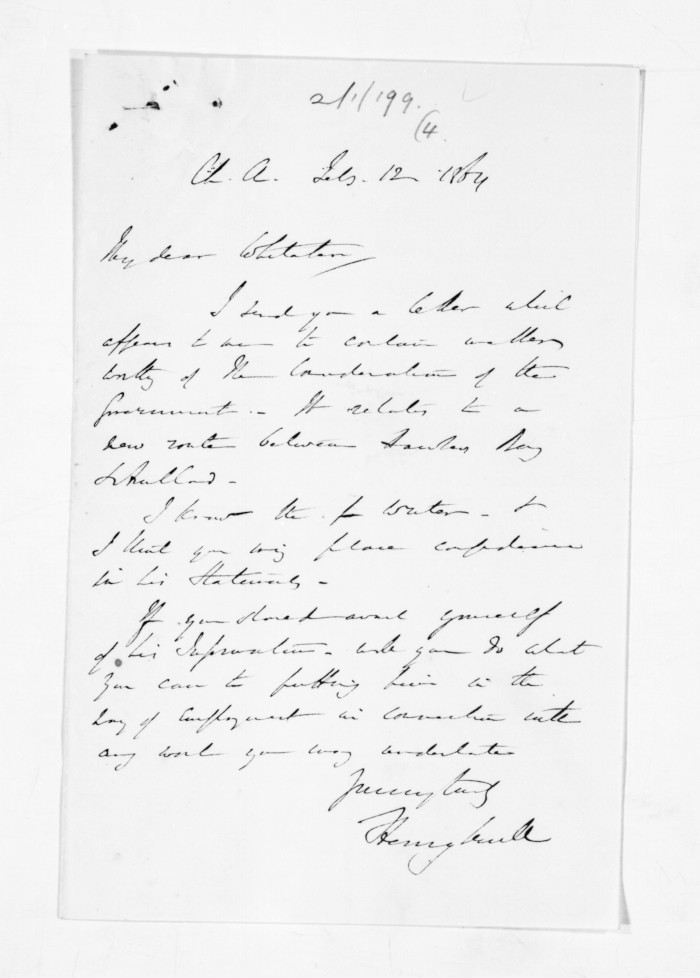 2/1/199.
(4.
Ch. Ch. Feb. 12 1864
My dear Whitaker
I send you a letter which
appears to me to contain matter
worthy of the Consideration of the
Government. - It relates to a
new route between Hawkes Bay
& Auckland -
I know the writer - &
I think you may place confidence
in his Statements -
If you should avail yourself
of his Information - will you do what
you can to putting him in the
Way of Employment in connection with
any work you may undertake
Yours very truly
Henry Sewell